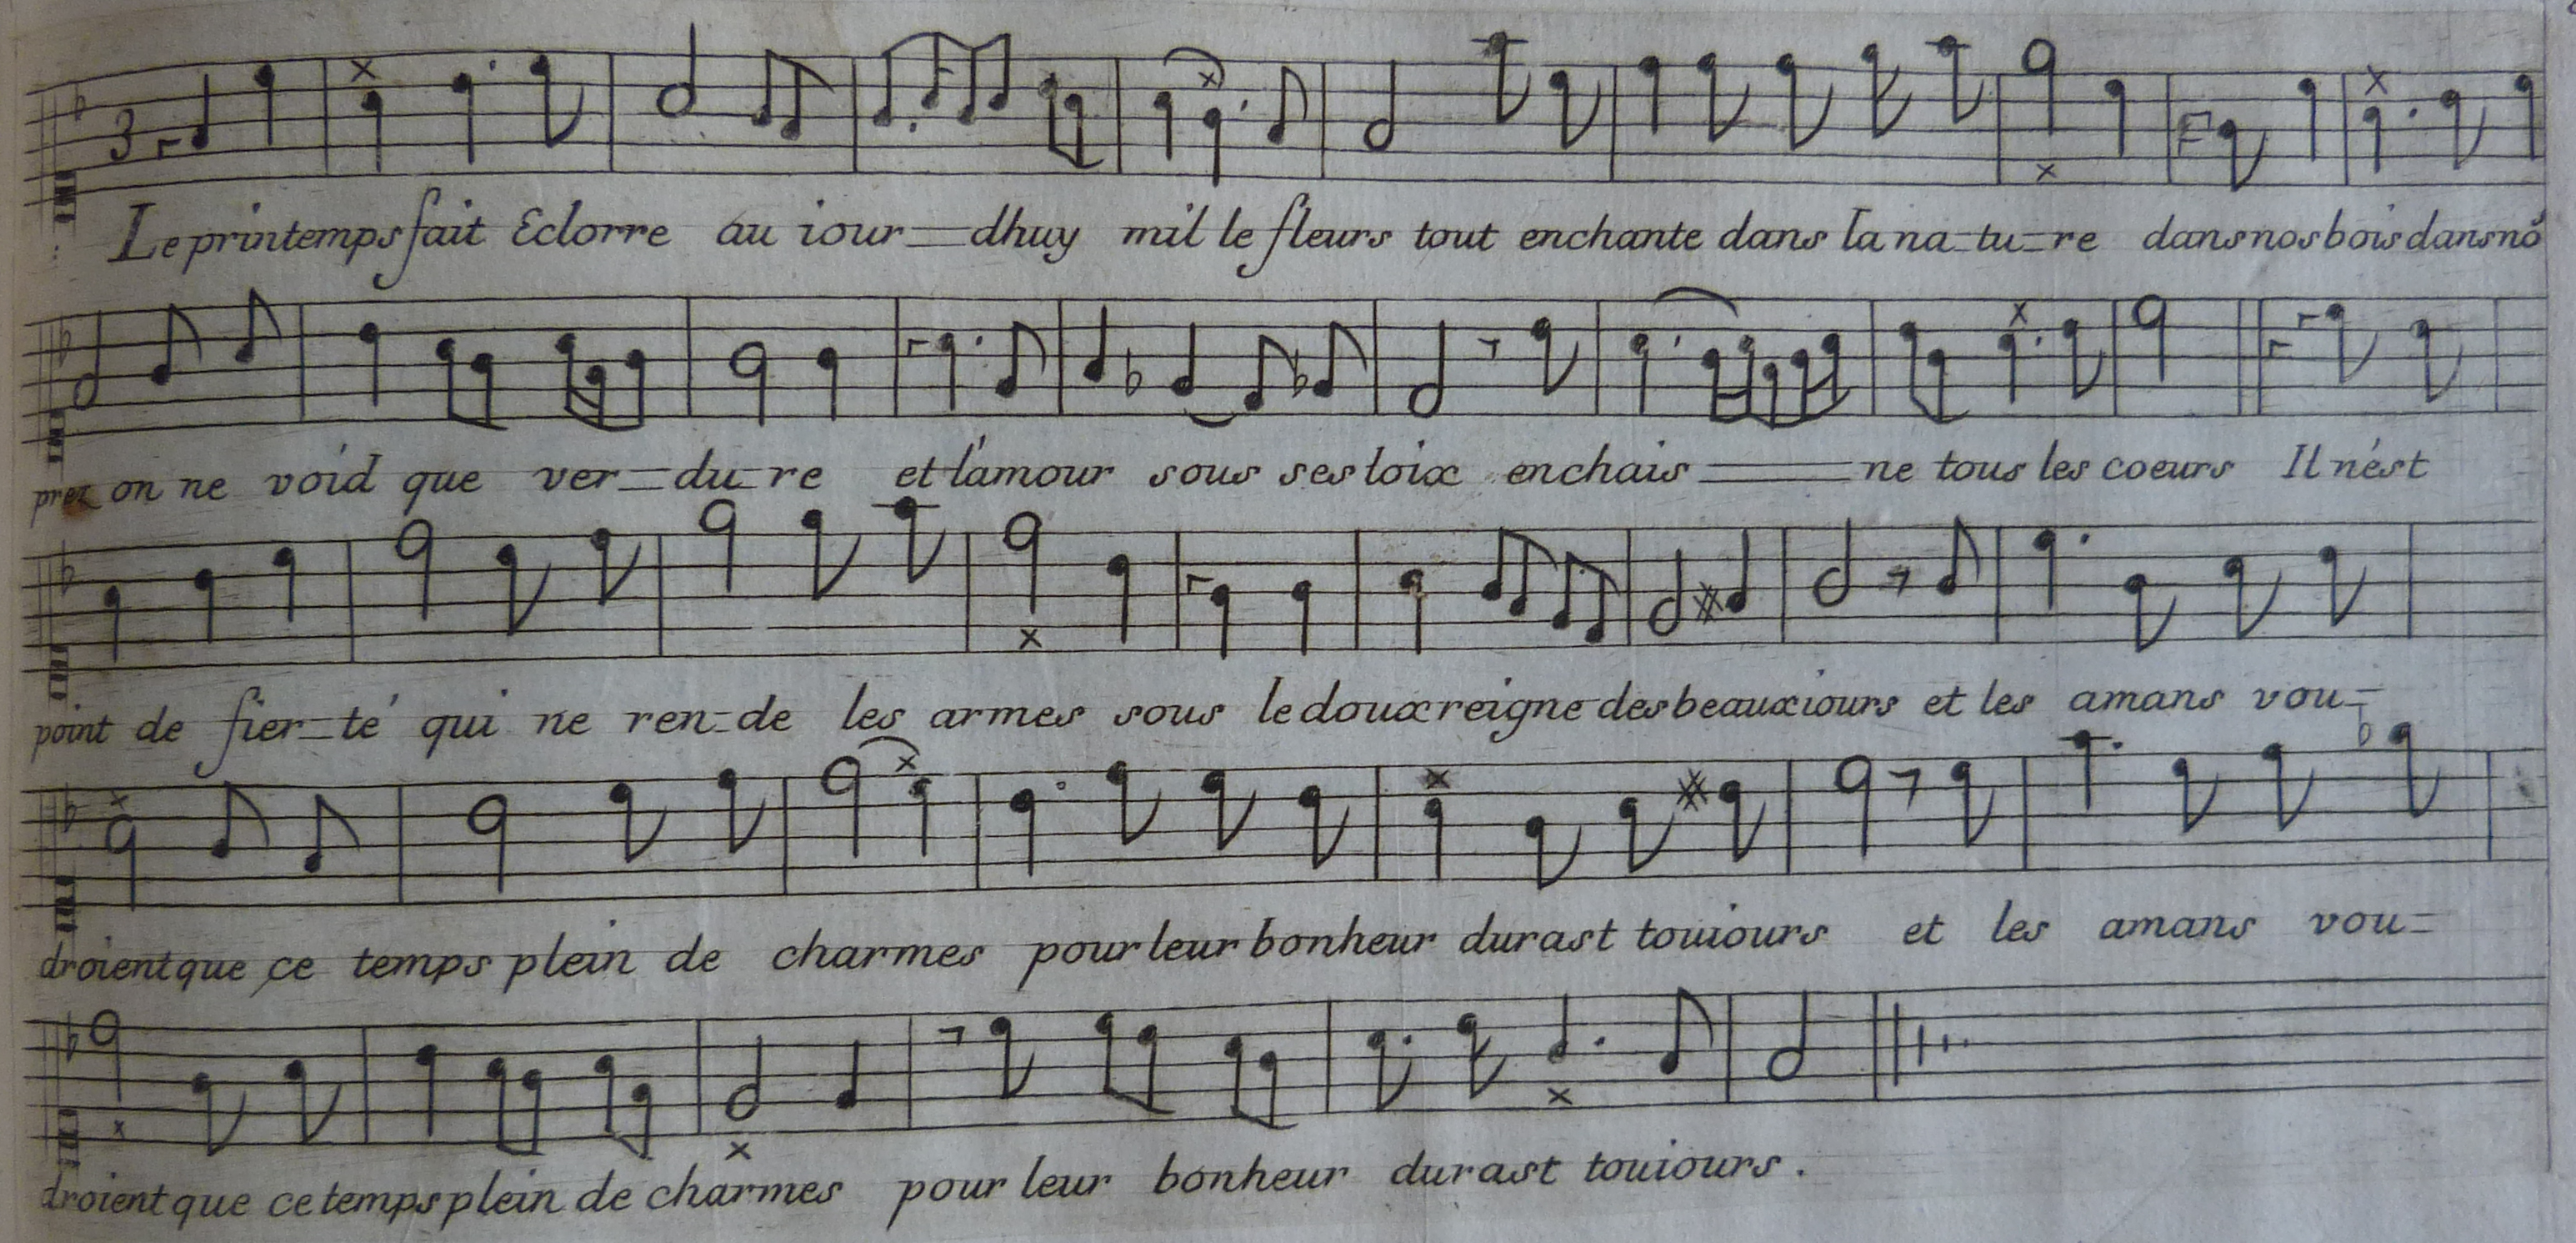 3
Le printemps fait Eclorre au iour dhuy mil le fleurs tout enchante dans la na tu re dans nos bois dans nõ
prez on ne void que ver du re et l'amour sous ses loix enchais ne tous les coeurs Il n'est
point de fier té qui ne ren de les armes sous le doux reigne des beaux iours et les amans vou
droient que ce temps plein de charmes pour leur bonheur durast touiours et les amans vou
droient que ce temps plein de charmes pour leur bonheur durast touiours.